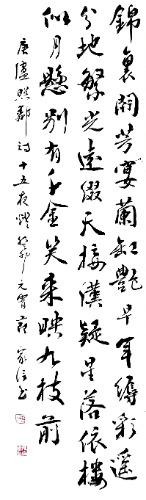 錦裏開芳宴蘭缸艷早年縟彩遥
分地繁光遠綴天接漢疑星落依樓
似月懸别有千金笑来映九枝前
唐盧照鄰詩十五夜燈癸卯元宵家信书